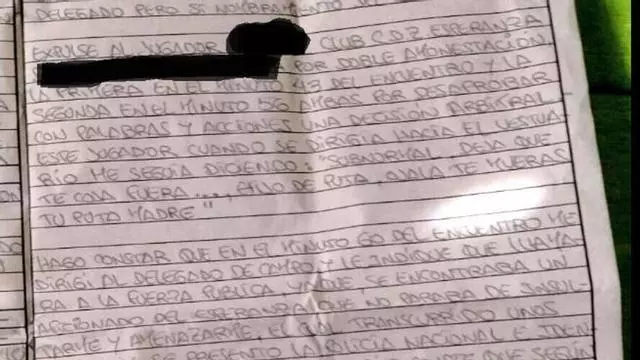 DELEGADO PERO SU NOMBRAMIENTO
EXPULSE AL JUGADOR CLUB C.D. ESPERANZA
POR DOBLE AMONESTACIÓN
LA PRIMERA EN EL MINUTO 43 DEL ENCUENTRO Y LA
SEGUNDA EN EL MINUTO 56 AMBAS POR DESAPROBAR
CON PALABRAS Y ACCIONES UNA DECISIÓN ARBITRAL
ESTE JUGADOR CUANDO SE DIRIGIA HACIA EL VESTUA-
RIO ME SEGUIA DICIENDO "SUBNORMAL, DEJA QUE
TE COJA FUERA..., HIJO DE PUTA, OJALA TE MUERAS
TU PUTA MADRE"
HAGO CONSTAR QUE EN EL MINUTO 60 DEL ENCUENTRO ME
DIRIGI AL DELEGADO DE CAMPO Y LE INDIQUE QUE LLAMA-
RA A LA FUERZA PUBLICA, YA QUE SE ENCONTRABA UN
AFICIONADO DEL ESPERANZA QUE NO PARABA DE INSUL-
TARME Y AMENAZARME, EL CUAL TRANSCURRIDO UNOS
SE PRESENTO LA POLICÍA NACIONAL E IDEN-